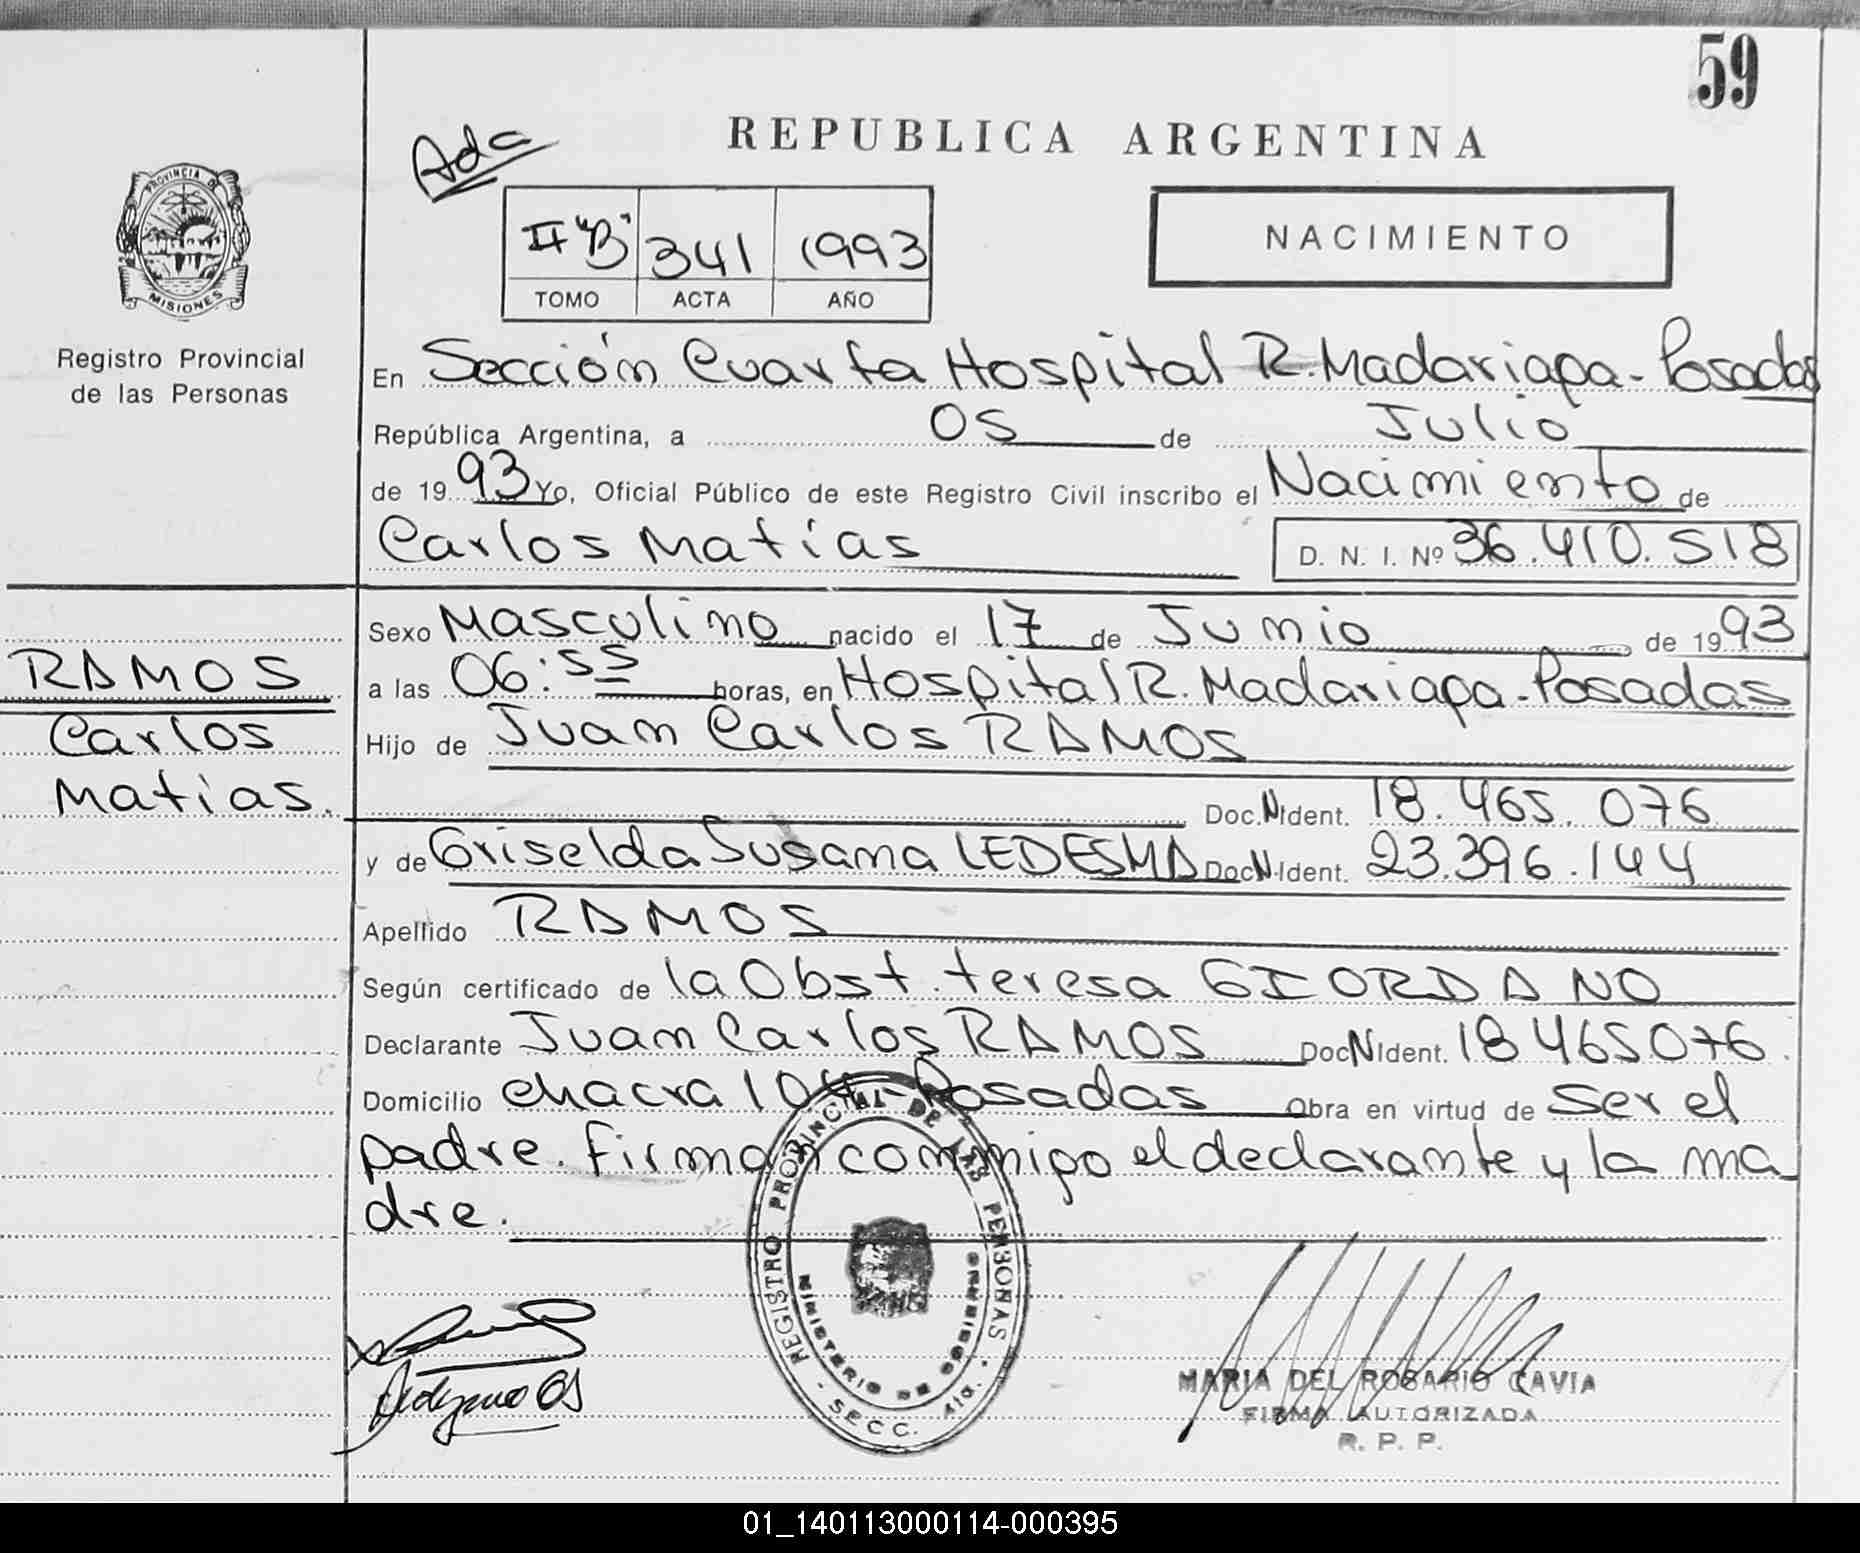 59
Ada
REPUBLICA ARGENTINA
PROVINCIA DE MISIONES
II "B" 341 1993
TOMO ACTA AÑO
NACIMIENTO
Registro Provincial
de las Personas
En Sección Cuarta Hospital R. Madariaga - Posadas
República Argentina, a 05 de Julio
de 19 93 Yo, Oficial Público de este Registro Civil inscribo el Nacimiento de
Carlos Matías D. N. I. Nº 36.410.518
Sexo Masculino nacido el 17 de Junio de 19 93
RAMOS
Carlos
Matias.
a las 06:55 horas, en Hospital R. Madariaga - Posadas
Hijo de Juan Carlos RAMOS
Doc.N.Ident. 18.465.076
y de Griselda Susana LEDESMA Doc.N.Ident. 23.396.144
Apellido RAMOS
Según certificado de la Obst. teresa GIORDANO
Declarante Juan Carlos RAMOS Doc.N.Ident. 18465076.
Domicilio chacra 104 - Posadas Obra en virtud de ser el
padre. Firman conmigo el declarante y la ma
dre.
REGISTRO PROVINCIAL DE LAS PERSONAS
MINISTERIO DE GOBIERNO
- SECC. 4ta. -
MARIA DEL ROSARIO CAVIA
FIRMA AUTORIZADA
R. P. P.
01_140113000114-000395